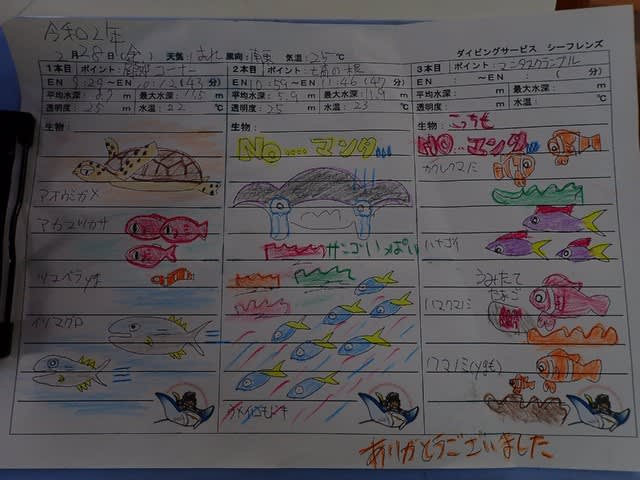 令和02年
2月28日(金) 天気:はれ 風向:南東 気温:25℃
ダイビングサービス シーフレンズ
1本目 ポイント: コーナー
EN 9:29~EN 10:12(43分)
平均水深: m 最大水深: m
透明度: 25 m 水温: 22 ℃
生物:
アオウミガメ
アカマツカサ
ツユベラyg
イソマグロ
2本目 ポイント: の根
EN 10:59~EN 11:46(47分)
平均水深: 5.9 m 最大水深: 11.9 m
透明度: 25 m 水温: 23 ℃
生物:
NO....マンタ
サンゴいっぱい
3本目 ポイント: マンタスクランブル
EN : ~EN : ( 分)
平均水深: m 最大水深: m
透明度: m 水温: ℃
生物: こっちも
NO...マンタ
カクレクマノミ
ハナゴイ
うみたて
たまご
ハマクマノミ
クマノミ(ygも)
ありがとうございました